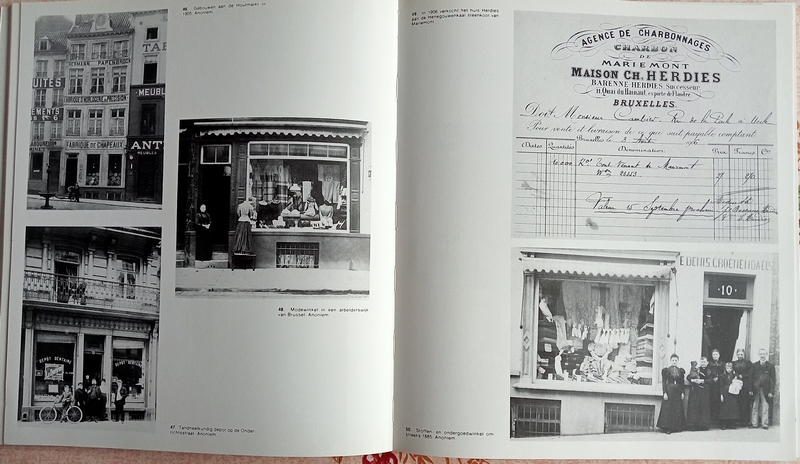 46. Gebouwen aan de Houtmarkt in
1905. Anoniem.
HERMANN PAPENBROCK
FABRIQUE D'HORLOGERIE DE PRECISION
FABRIQUE DE CHAPEAUX
MEUBLE
ANT
MEUBLES
48. Modewinkel in een arbeiderswijk
van Brussel. Anoniem.
DEPOT DENTAIRE
47. Tandheelkundig depot op de Onder-
richtsstraat. Anoniem.
49. In 1906 verkocht het huis Herdies
aan de Henegouwenkaai steenkool van
Mariemont.
AGENCE DE CHARBONNAGES
CHARBON
DE
MARIEMONT
MAISON CH. HERDIES
BARENNE-HERDIES, Successeur
11, Quai du Hainaut, ex porte de Flandre
BRUXELLES
Doit Monsieur
Pour vente et livraison de ce qui suit payable comptant
Bruxelles, le
Dates Quantités Dénomination Prix Francs Cs
10.000 Kos Tout Venant de Mariemont
Valeur 15 Septembre prochain
E. DENIS GROENENDAELS
10
50. Stoffen- en ondergoedwinkel om-
streeks 1885. Anoniem.